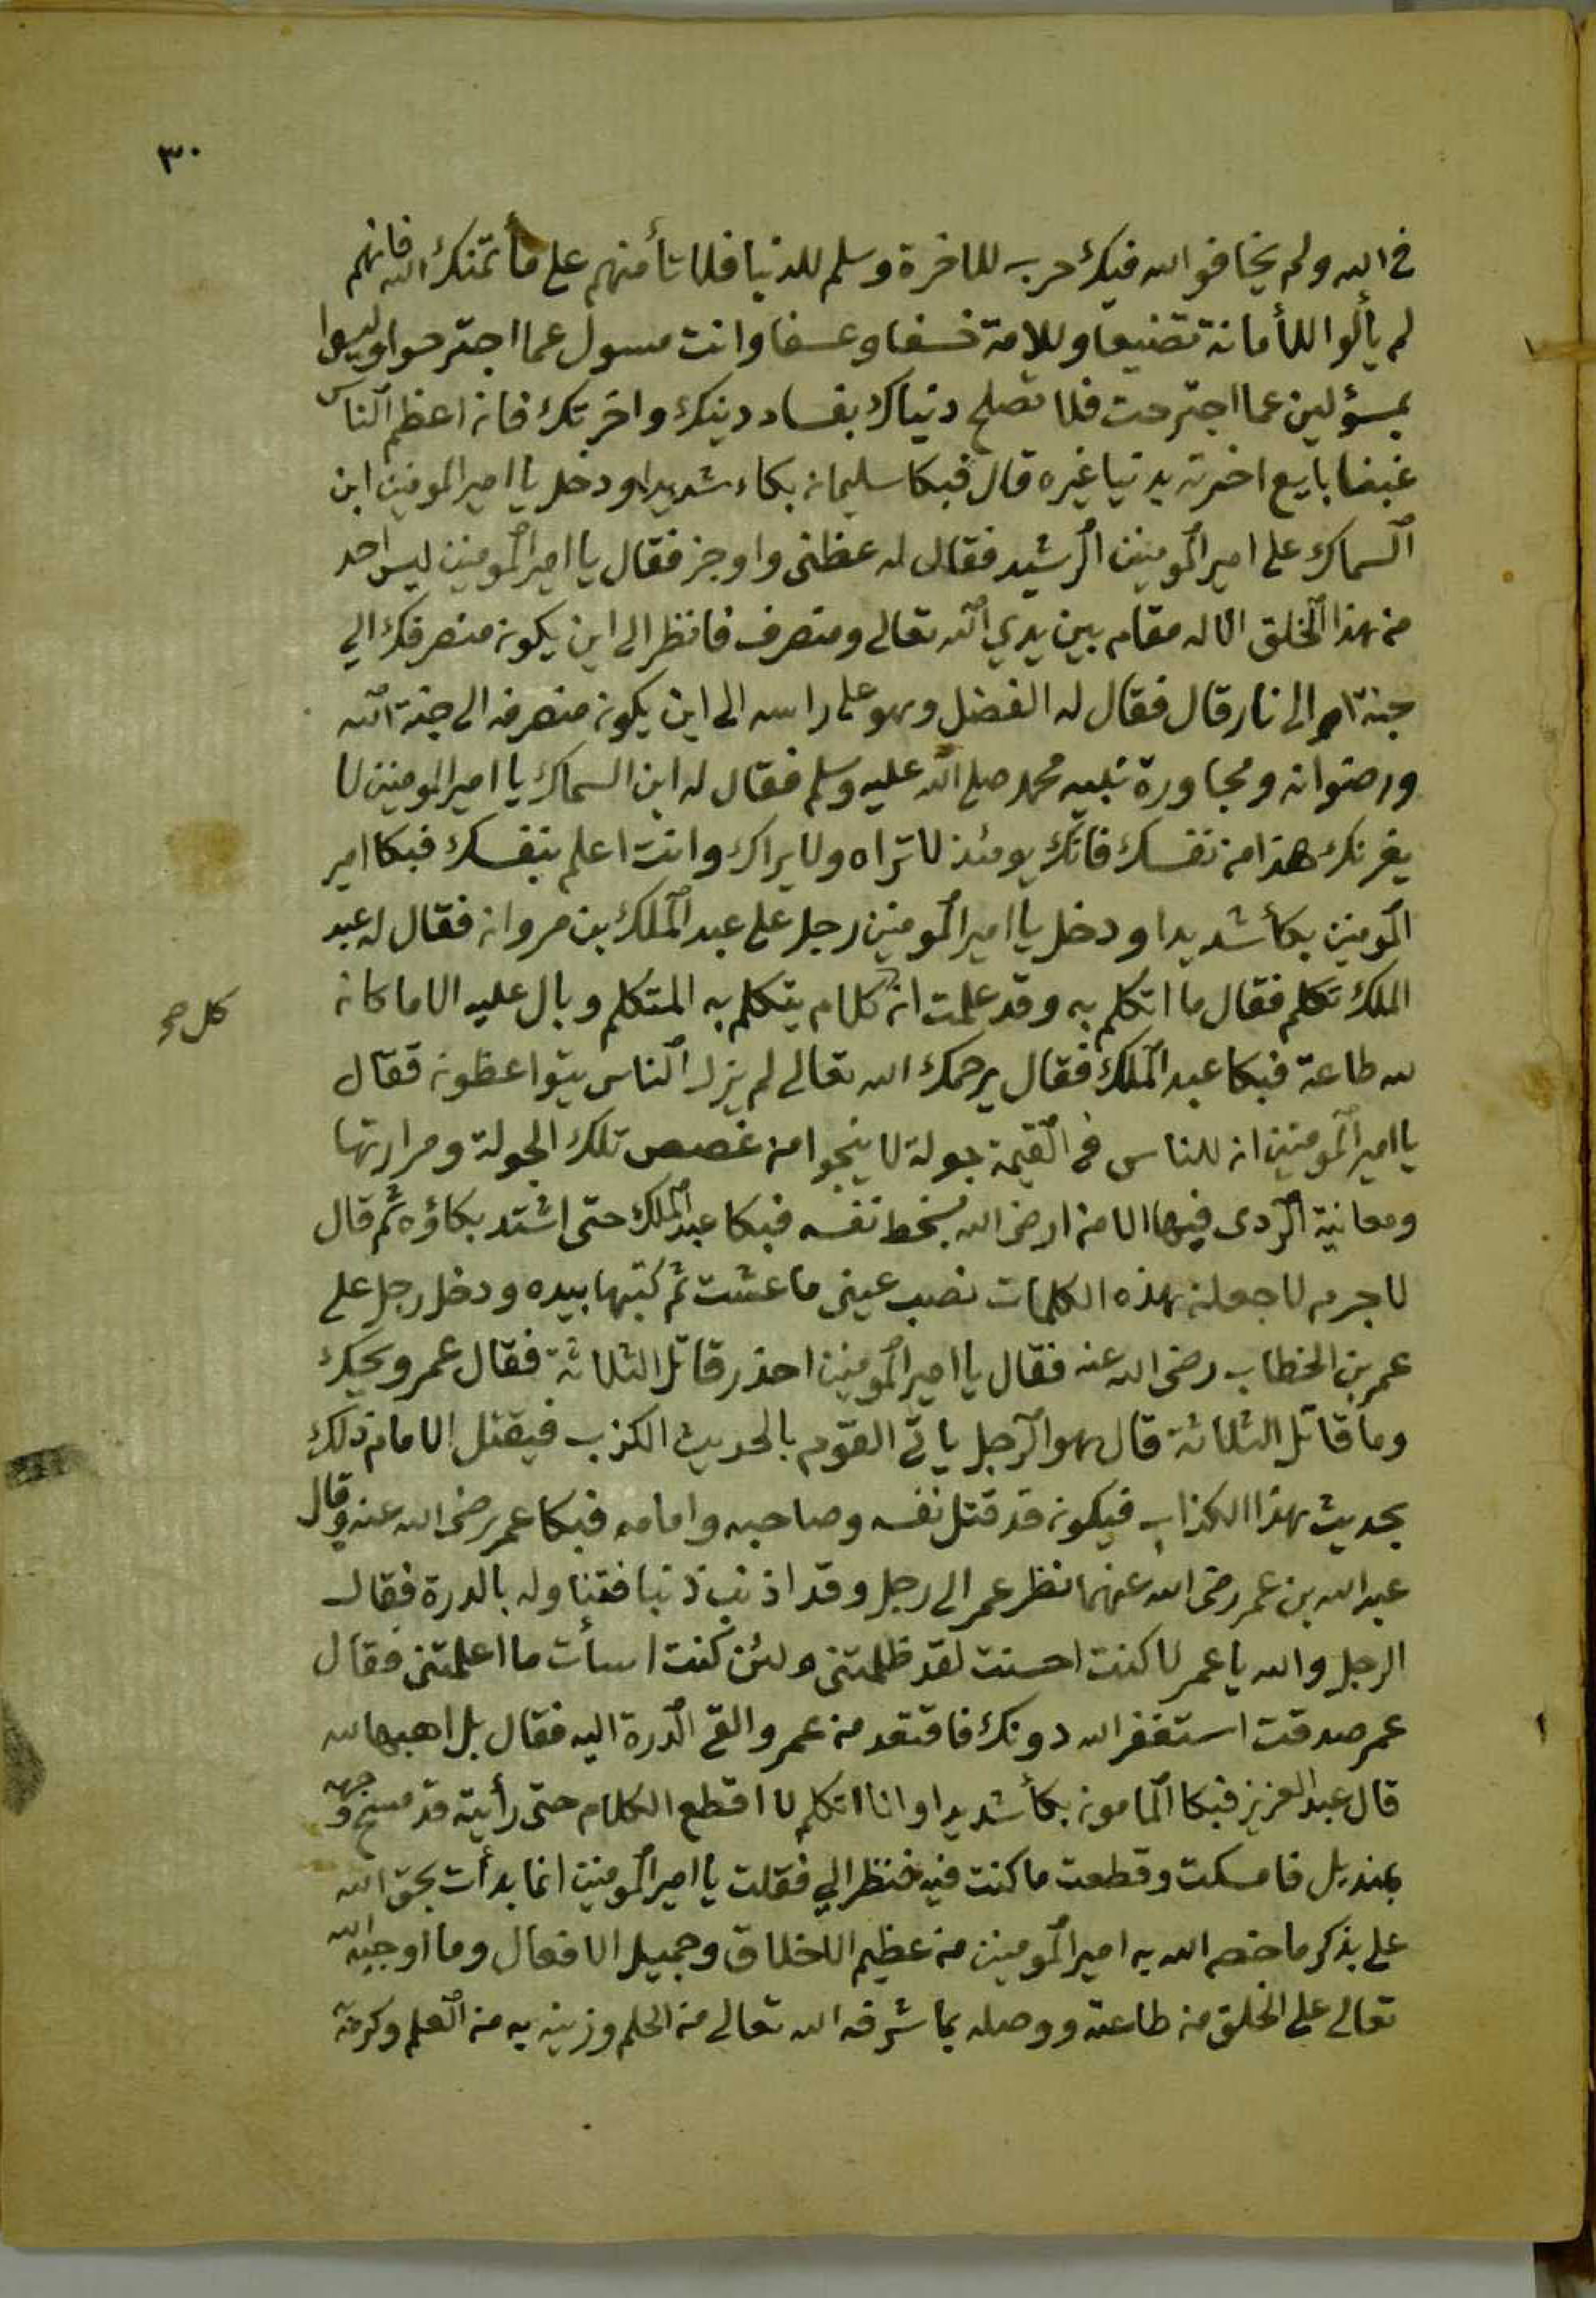 ٣٠
في الله ولم يخافوا الله فيك حرب للاخرة وسلم للدنيا فلا تأمنهم على ما أتمنك الله فانهم
لم يألوا للأمانة تضيعا وللامة خسفا وعسفا وانت مسول عما اجترحوا وليسوا
بمسؤلين عما اجترحت فلا تصلح دنياك بفساد دينك واخرتك فان اعظم الناس
غبنا بايع اخرته بدنيا غيره قال فبكا سليمان بكاء شديدا ودخل يا امير المومنين ابن
السماك على امير المومنين الرشيد فقال له عظنى واوجز فقال يا امير المومنين ليس احد
من هذا الخلق الا له مقام بين يدي الله تعالى ومنصرف فانظر الى اين يكون منصرفك الي
جنة ام الى نار قال فقال له الفضل وهو على راسه الى اين يكون منصرفه الى جنة الله
ورضوانه ومجاورة نبيه محمد صلى الله عليه وسلم فقال له ابن السماك يا امير المومنين لا
يغرنك هذا من نفسك فانك يومئذ لا تراه ولا يراك وانت اعلم بنفسك فبكا امير
المومنين بكأ شديدا ودخل يا امير المومنين رجل على عبد الملك بن مروان فقال له عبد
الملك تكلم فقال ما اتكلم به وقد علمت ان كلام يتكلم به المتكلم وبال عليه الا ما كان
كل صح
لله طاعة فبكا عبد الملك فقال يرحمك الله تعالى لم يزل الناس يتواعظون فقال
يا امير المومنين ان للناس في القيمة جولة لا ينجوا من غصص تلك الجولة ومرارتها
ومعانية الردى فيها الا من ارضى الله بسخط نفسه فبكا عبد الملك حتى اشتد بكاؤه ثم قال
لا جرم لاجعلن هذه الكلمات نصب عينى ما عشت ثم كتبها بيده ودخل رجل على
عمر بن الخطاب رضى الله عنه فقال يا امير المومنين احذر قاتل الثلاثة فقال عمر ويحك
وما قاتل الثلاثة قال هو الرجل ياتى القوم بالحديث الكذب فيقتل الامام ذلك
بحديث هذا الكذاب فيكون قد قتل نفسه وصاحبه وامامه فبكا عمر رضى الله عنه وقال
عبد الله بن عمر رضى الله عنهما نظر عمر الى رجل وقد اذنب ذنبا فتناوله بالدرة فقال
الرجل والله يا عمر لا كنت احسنت لقد ظلمتنى ولئن كنت اسأت ما اعلمتنى فقال
عمر صدقت استغفر الله دونك فاقتقد من عمر والقى الدرة اليه فقال بل اهبها لله
قال عبد العزيز فبكا المامون بكأ شديدا وانا اتكلم لا اقطع الكلام حتى رأيته قد مسح وجهه
بمنديل فامسكت وقطعت ما كنت فيه فنظر الي فقلت يا امير المومنين انما بدأت بحق الله
على بذكر ما خصه الله به امير المومنين من عظيم الاخلاق وجميل الافعال وما اوجبه الله
تعالى على الخلق من طاعته ووصله بما شرفه الله تعالى من الحلم وزينه به من العلم وكرمه